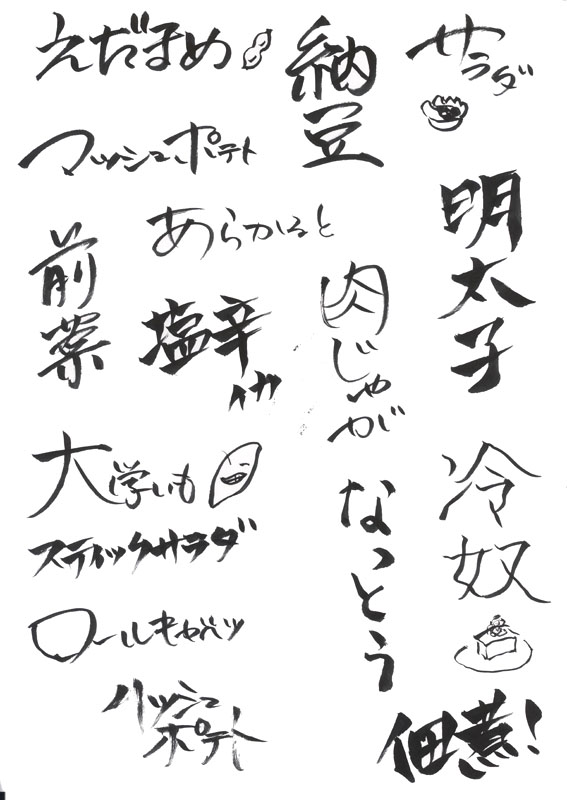 えだまめ
納豆
サラダ
マッシュポテト
明太子
あらかると
前菜
塩辛
イカ
肉じゃが
大学いも
冷奴
スティックサラダ
なっとう
ロールキャベツ
ハッシュ
ポテト
佃煮!